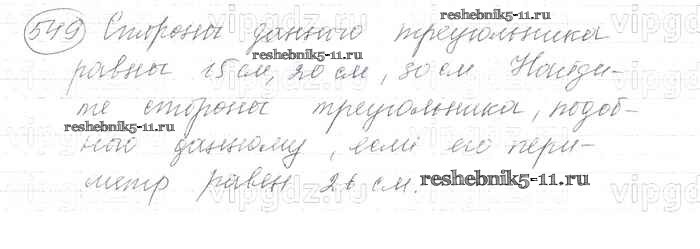 549 Стороны данного треугольника
равны 15 см, 20 см, 30 см. Найди-
те стороны треугольника, подоб-
ного данному, если его пери-
метр равен 26 см.
reshebnik5-11.ru
reshebnik5-11.ru
reshebnik5-11.ru
reshebnik5-11.ru